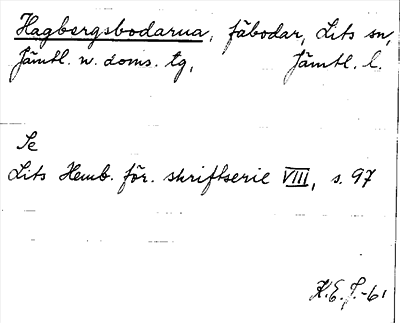 Hagbergsbodarna, fäbodar, Lits sn,
Jämtl. w. doms. tg, Jämtl. l.
Se
Lits Hemb. för. skriftserie VIII, s. 97
K.E.J.-61